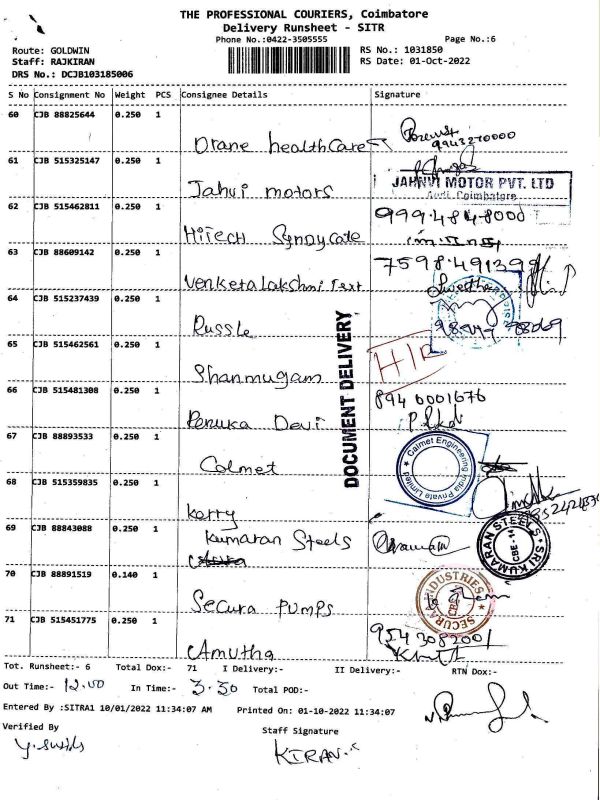 THE PROFESSIONAL COURIERS, Coimbatore
Delivery Runsheet - SITR
Phone No.:0422-3505555
Page No.:6
Route: GOLDWIN
RS No.: 1031850
Staff: RAJKIRAN
RS Date: 01-Oct-2022
DRS No.: DCJB103185006
S No Consignment No Weight PCS Consignee Details Signature
60 CJB 88825644 0.250 1
Drane healthCare
9943270000
61 CJB 515325147 0.250 1
Jahvi motors
JAHNVI MOTOR PVT. LTD
Coimbatore
62 CJB 515462811 0.250 1
HiTech Syndycate
999.484.8000
63 CJB 88609142 0.250 1
Venketalakshmi Text
7598.491399
64 CJB 515237439 0.250 1
Russle
Swetha
65 CJB 515462561 0.250 1
Shanmugam
H/D
66 CJB 515481308 0.250 1
Renuka Devi
8940001676
67 CJB 88893533 0.250 1
Colmet
Calmet Engineering India Private Limited
68 CJB 515359835 0.250 1
Kerry
69 CJB 88843088 0.250 1
Kumaran Steels
SRI KUMARAN STEELS
CBE-14
70 CJB 88891519 0.140 1
Secura Pumps
SECURA INDUSTRIES
71 CJB 515451775 0.250 1
Amutha
9543082001
DOCUMENT DELIVERY
Tot. Runsheet:- 6 Total Dox:- 71 I Delivery:- II Delivery:- RTN Dox:-
Out Time:- 12.00 In Time:- 3.30 Total POD:-
Entered By :SITRA1 10/01/2022 11:34:07 AM Printed On: 01-10-2022 11:34:07
Verified By
Staff Signature
KIRAN